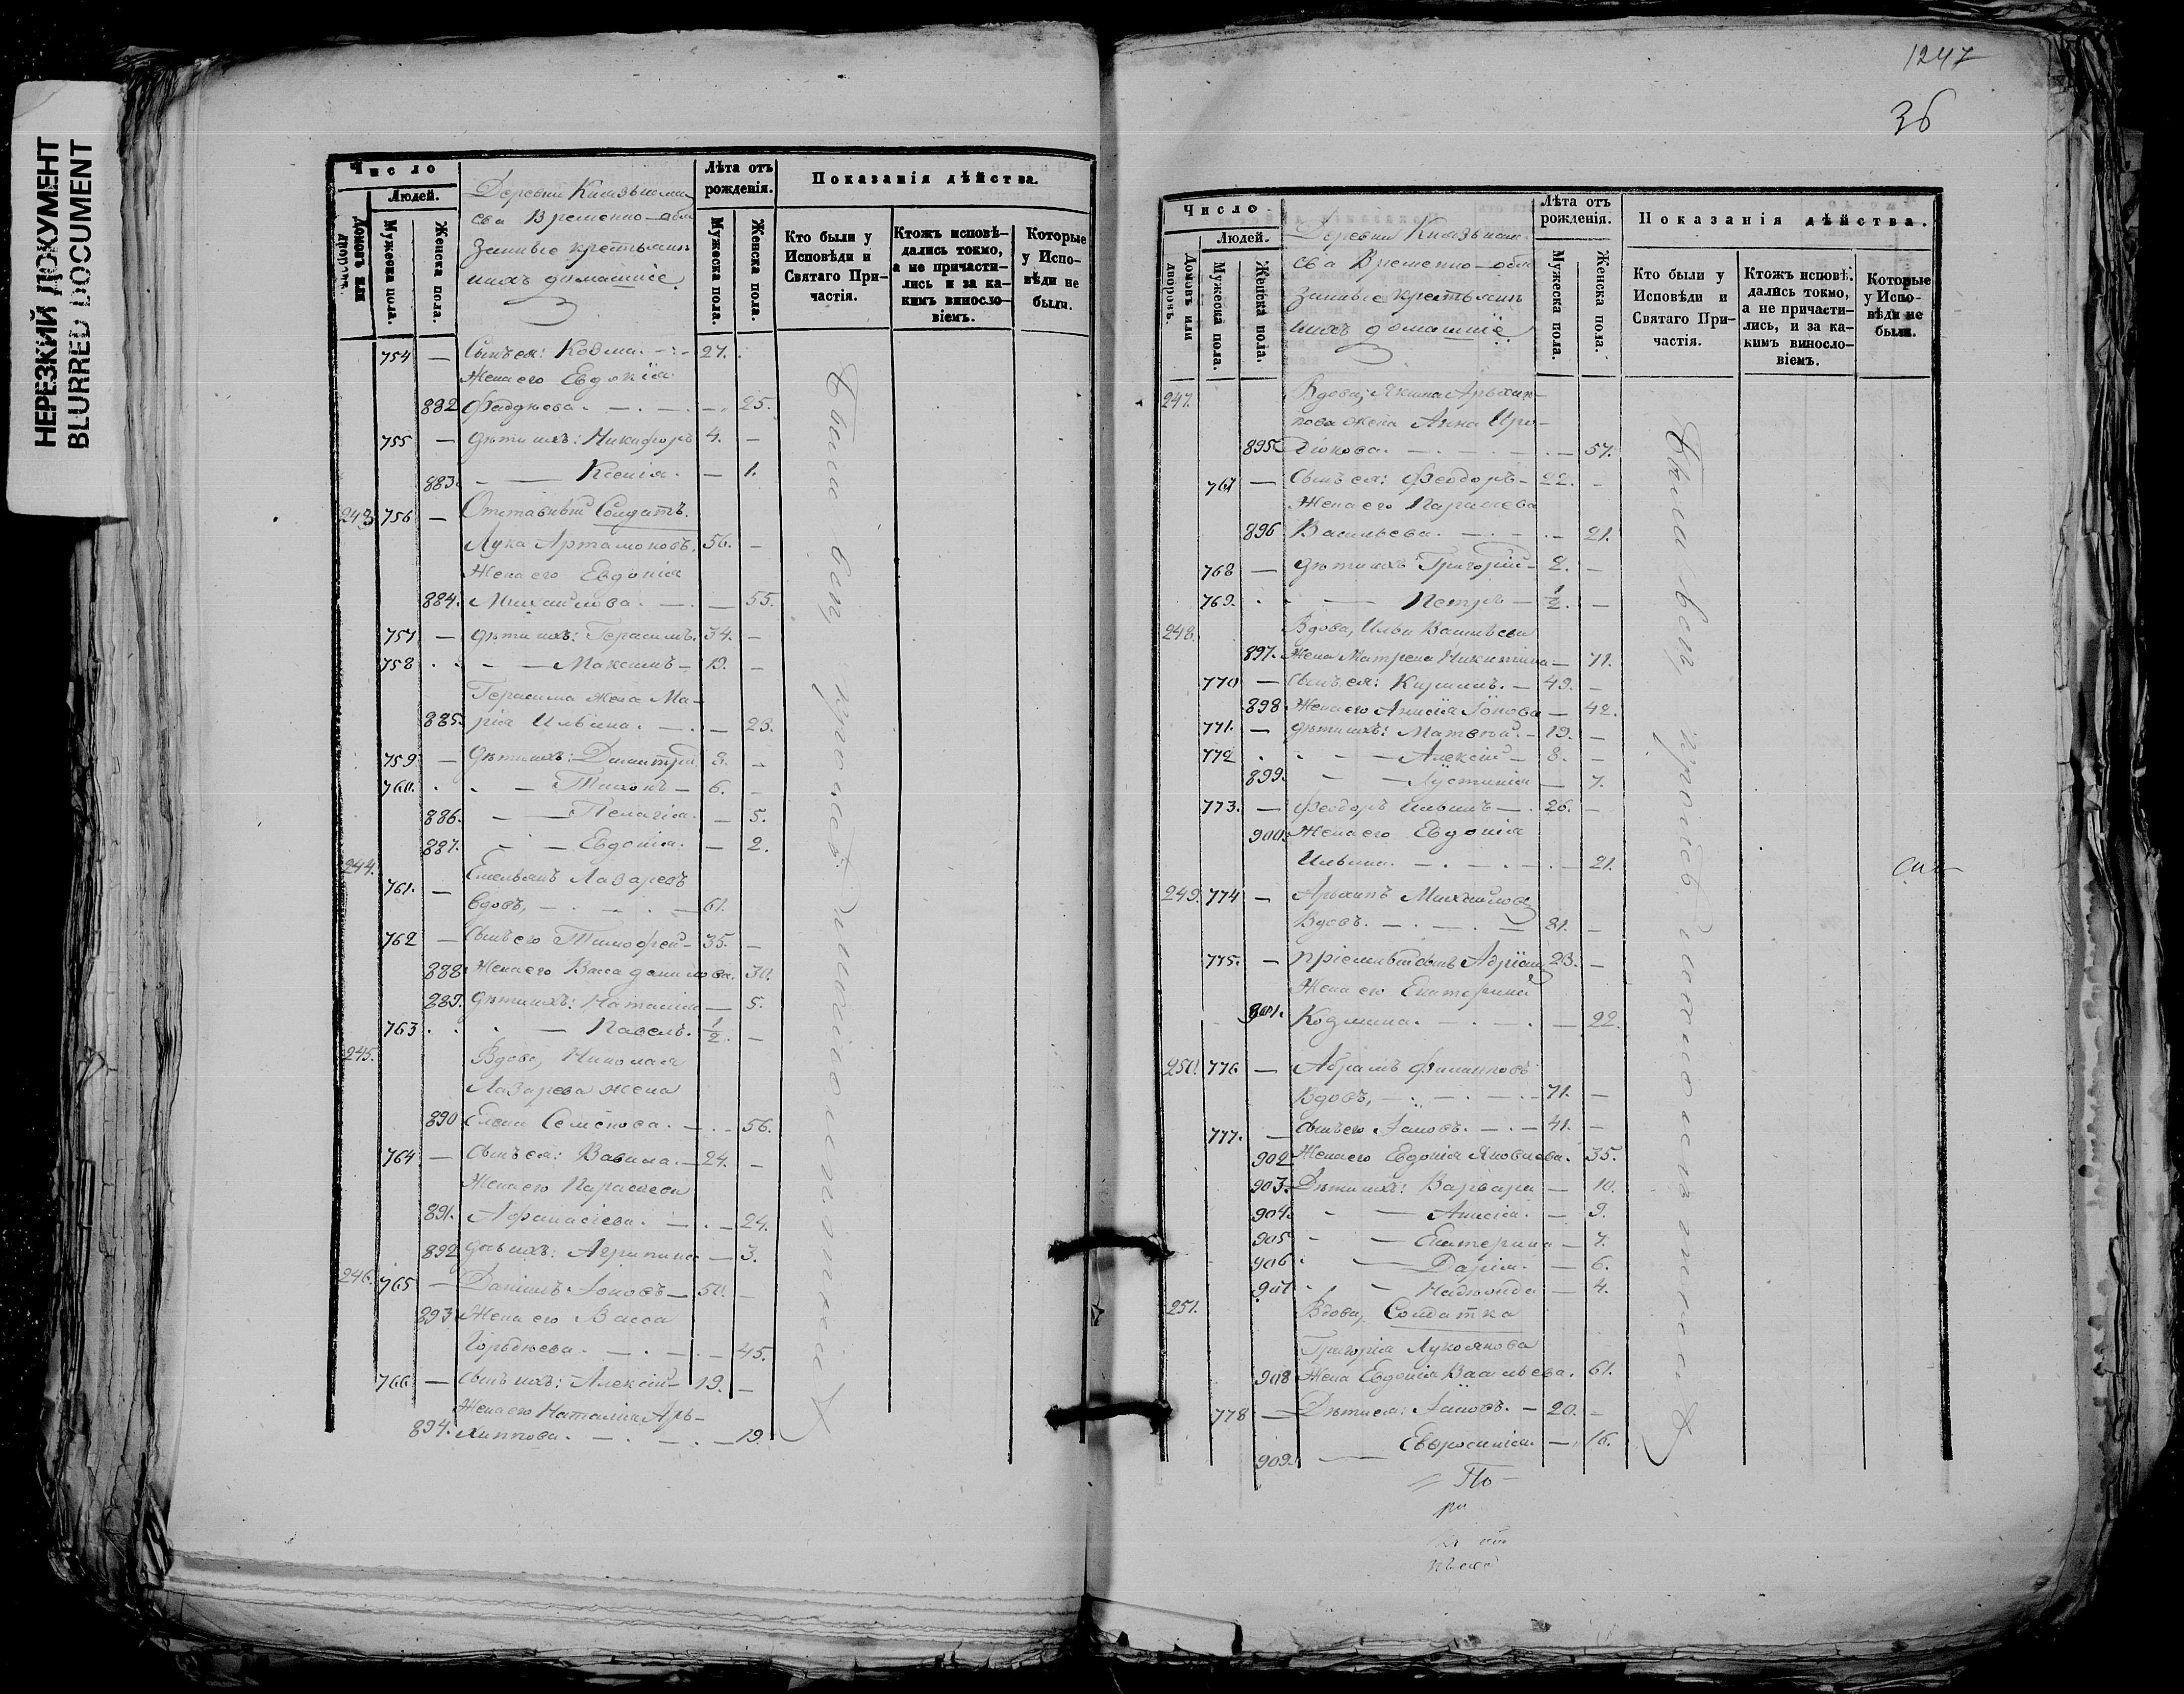 НЕРЕЗКИЙ ДОКУМЕНТ
BLURRED DOCUMENT
Число
Людей.
Домовъ или дворовъ.
Мужеска пола.
Женска пола.
Деревни
Временно-обя
занные крестьяне
ихъ домашніе
Лѣта отъ рожденія.
Мужеска пола.
Женска пола.
Показанія дѣйства.
Кто были у Исповѣди и Святаго Причастія.
Ктожъ исповѣдались токмо, а не причастились и за какимъ винословіемъ.
Которые у Исповѣди не были.
754 — Сынъ ея: Козма. 27.
Жена его Евдокія
882 Фаддѣева. 25.
755 — Дѣти ихъ: Никифоръ 4. —
883. — Ксенія. — 1.
243 756 — Отставный Солдатъ.
Лука Артамоновъ. 56. —
Жена его Евдокія
884. Михайлова. — 55.
757 — Дѣти ихъ: Герасимъ. 34. —
758 — Максимъ — 19. —
Герасима жена Ма-
885. рія Ильина. — 23.
759 — Дѣти ихъ: Димитрій 8. —
760. — Тихонъ — 6. —
886. — Пелагія. — 5.
887. — Евдокія. — 2.
244. 761. — Емельянъ Лазаревъ
вдовъ, — 61.
762 — Сынъ его Тимофей — 35. —
888. Жена его Васса Данилова. 30.
889. Дѣти ихъ: Наталія — 5.
763 — Павелъ. 1/2. —
245. Вдова, Николая
Лазарева жена
890 Елена Семенова. — 56.
764. — Сынъ ея: Вавила. — 24. —
Жена его Параскева
891. Афанасіева. — 24.
892 Дочь ихъ: Агрипина — 3.
246. 765 — Даніилъ Іоновъ — 50. —
893 Жена его Васса
Гордѣева. — 45.
766 — Сынъ ихъ: Алексій — 19. —
Жена его Наталія Ар-
894. хиппова. — 19.
Были вси, кромѣ малолѣтнихъ
1247
36
Число
Людей.
Домовъ или дворовъ.
Мужеска пола.
Женска пола.
Деревни
Временно-обя
занные крестьяне
ихъ домашніе
Лѣта отъ рожденія.
Мужеска пола.
Женска пола.
Показанія дѣйства.
Кто были у Исповѣди и Святаго Причастія.
Ктожъ исповѣдались токмо, а не причастились, и за какимъ винословіемъ.
Которые у Исповѣди не были.
247. Вдова, Архип-
пова жена Анна Иро-
895 діонова. — 57.
767 — Сынъ ея: Феодоръ — 22. —
Жена его Параскева
896 Васильева. — 21.
768 — Дѣти ихъ Григорій — 2. —
769. — Петръ — 1/2. —
248. Вдова, Ильи
897. Жена Матрена Никитина — 71.
770 — Сынъ ея: Кирилъ. — 49. —
898 Жена его Анисія Іонова — 42.
771. — Дѣти ихъ: Матвей. — 19. —
772 — Алексій — 8. —
899. — Іустинія — 7.
773. — Феодоръ Ильинъ — 26. —
900. Жена его Евдокія
Ильина. — 21.
249. 774 — Архипъ Михайловъ
Вдовъ. — 81. —
775. — Пріемный сынъ Адріанъ 23. —
Жена его Екатерина
901. Козмина. — 22.
250. 776 — Абрамъ Филипповъ
Вдовъ, — 71. —
777. — Сынъ его Іаковъ. — 41. —
902 Жена его Евдокія Яковлева. 35.
903. Дѣти ихъ: Варвара — 10.
904. — Анисія. — 9.
905 — Екатерина — 7.
906 — Дарія. — 6.
907 — Надежда — 4.
251. Вдова, Солдатка
Григорія Лукоянова
908 Жена Евдокія Васильева. 61.
778 — Дѣти ея: Іаковъ. — 20. —
909. Евфросинія. — 16.
По-
Были вси, кромѣ малолѣтнихъ